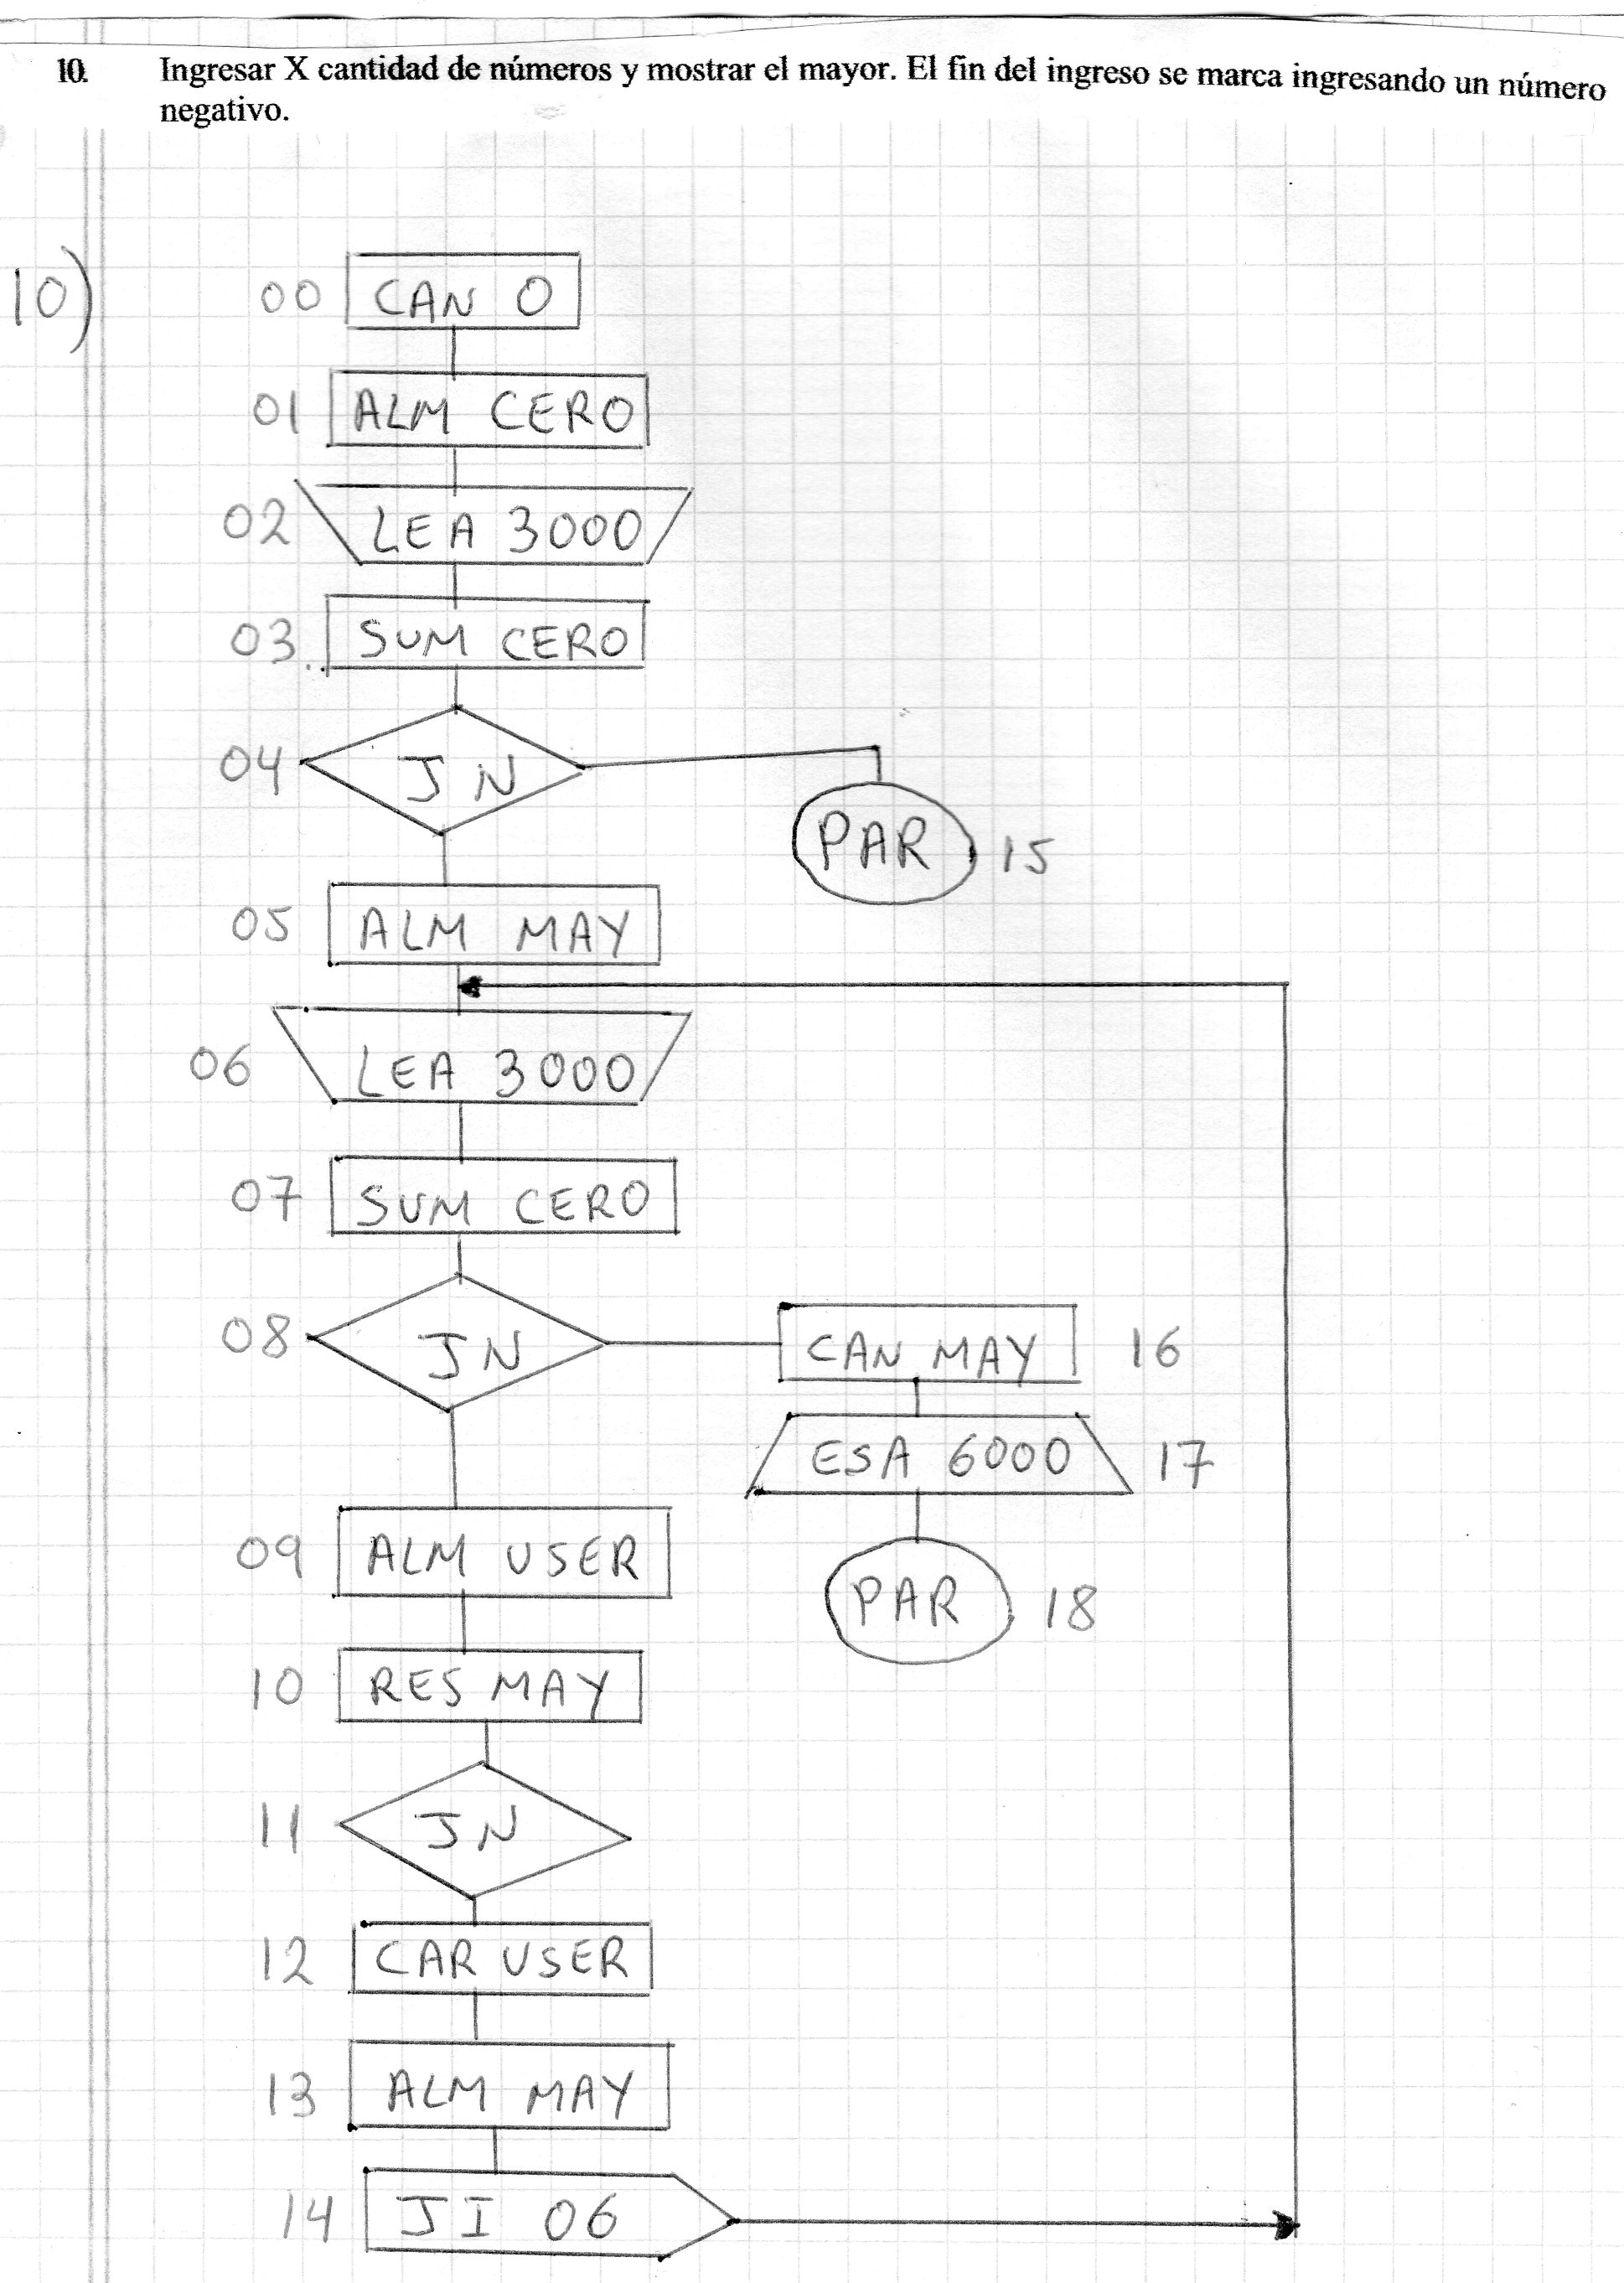 10. Ingresar X cantidad de números y mostrar el mayor. El fin del ingreso se marca ingresando un número
negativo.
10)
00 CAN 0
01 ALM CERO
02 LEA 3000
03 SUM CERO
04 JN
PAR 15
05 ALM MAY
06 LEA 3000
07 SUM CERO
08 JN CAN MAY 16
ESA 6000 17
09 ALM USER
PAR 18
10 RES MAY
11 JN
12 CAR USER
13 ALM MAY
14 JI 06